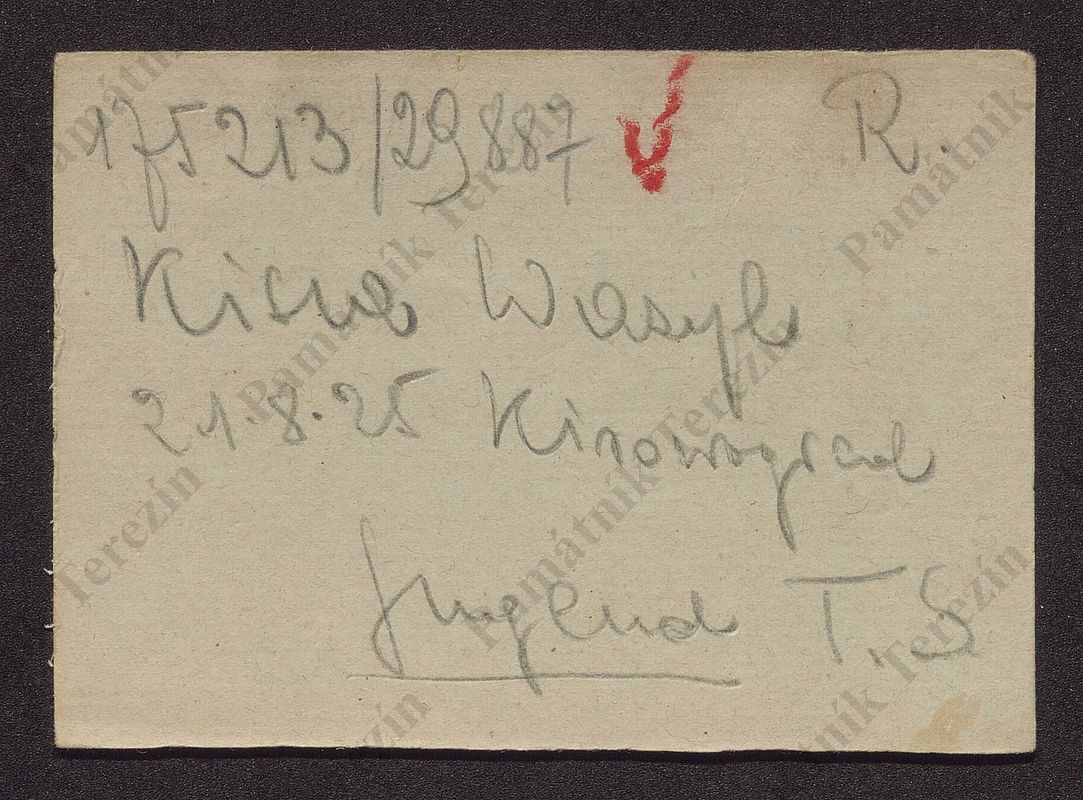 175213/29887 R.
Kisil Wasyl
21.8.25 Kirowograd
Jugend T.S
Památník Terezín